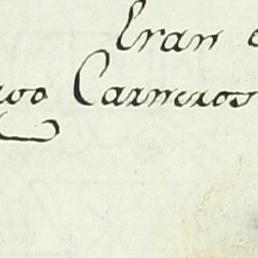 Eran
Carneros